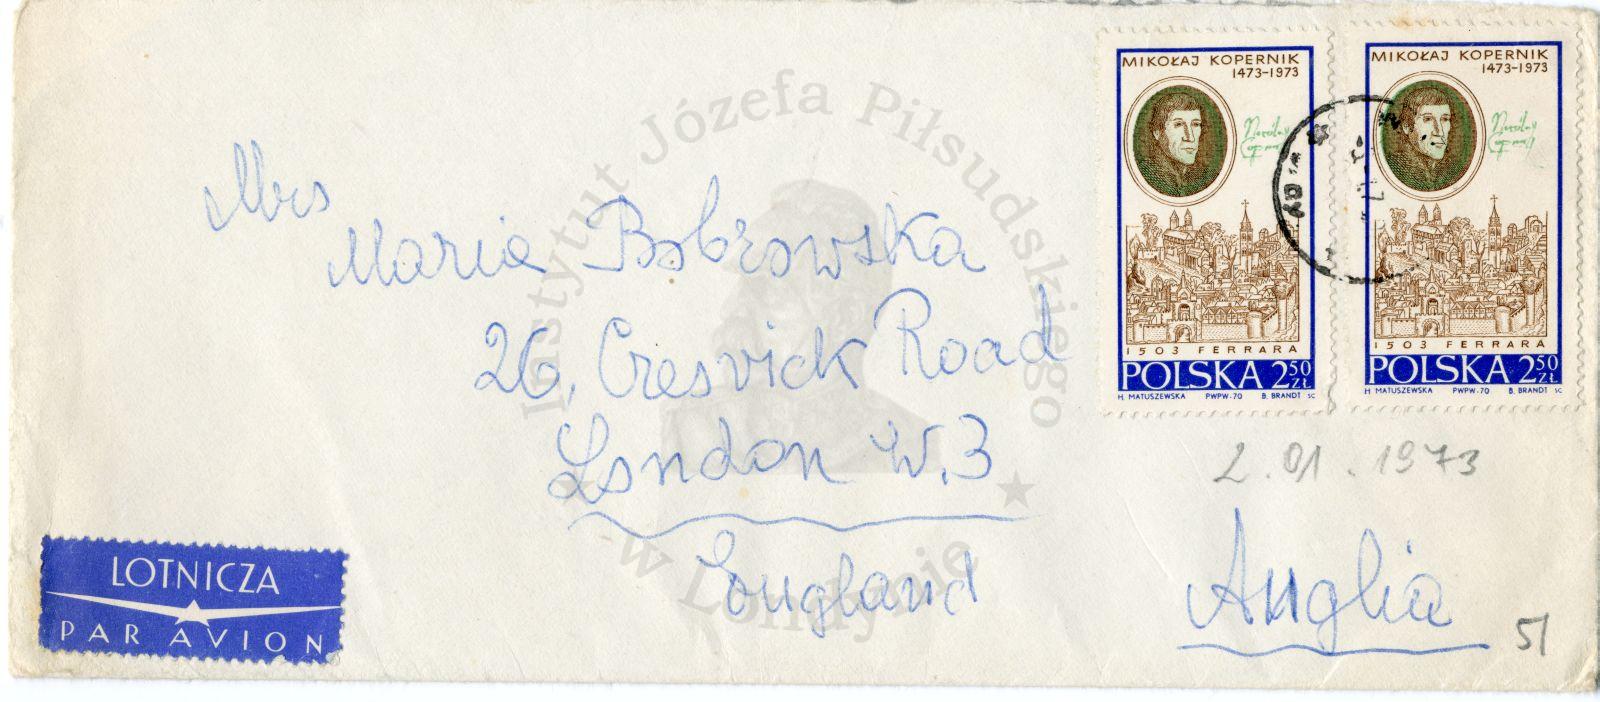 MIKOŁAJ KOPERNIK
1473-1973
1503 FERRARA
POLSKA 2 50 ZŁ
H. MATUSZEWSKA PWPW-70 B. BRANDT SC
MIKOŁAJ KOPERNIK
1473-1973
1503 FERRARA
POLSKA 2 50 ZŁ
H. MATUSZEWSKA PWPW-70 B. BRANDT SC
Instytut Józefa Piłsudskiego
w Londynie
Mrs
Maria Bobrowska
26, Cresvick Road
London W.3
England
2.01.1973
Anglia
51
LOTNICZA
PAR AVION